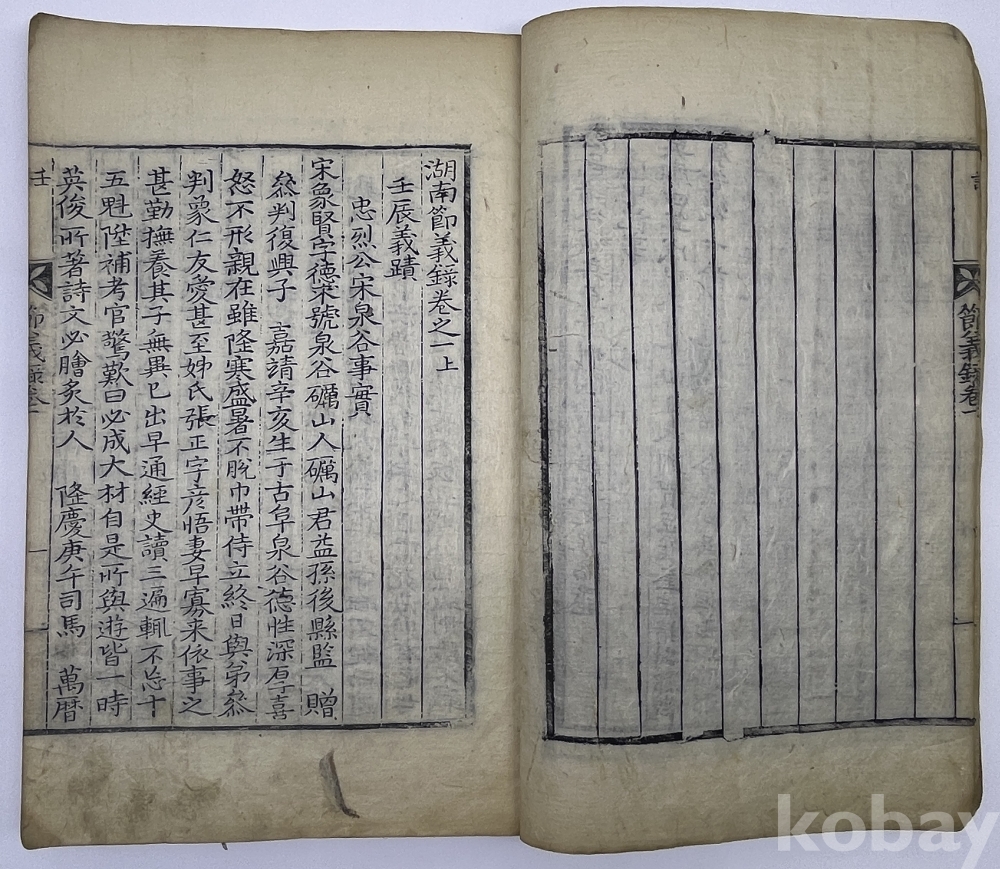 節義錄卷一
一
湖南節義錄卷之一上
壬辰義蹟
忠烈公宋泉谷事實
宋象賢字德求號泉谷礪山人礪山君益孫後縣監 贈
叅判復興子 嘉靖辛亥生于古阜泉谷德性深厚喜
怒不形親在雖隆寒盛暑不脫巾帶侍立終日與弟叅
判象仁友愛甚至姊氏張正字彦悟妻早寡来依事之
甚勤撫養其子無異已出早通經史讀三遍輒不忘十
五魁陞補考官驚歎曰必成大材自是所與遊皆一時
英俊所著詩文必膾炙於人 隆慶庚午司馬 萬暦
壬
節義錄卷一
一
kobay